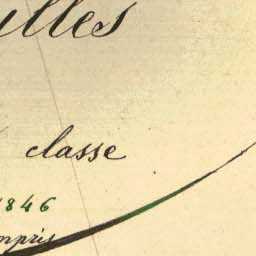 ulles
classe
1846
mpris